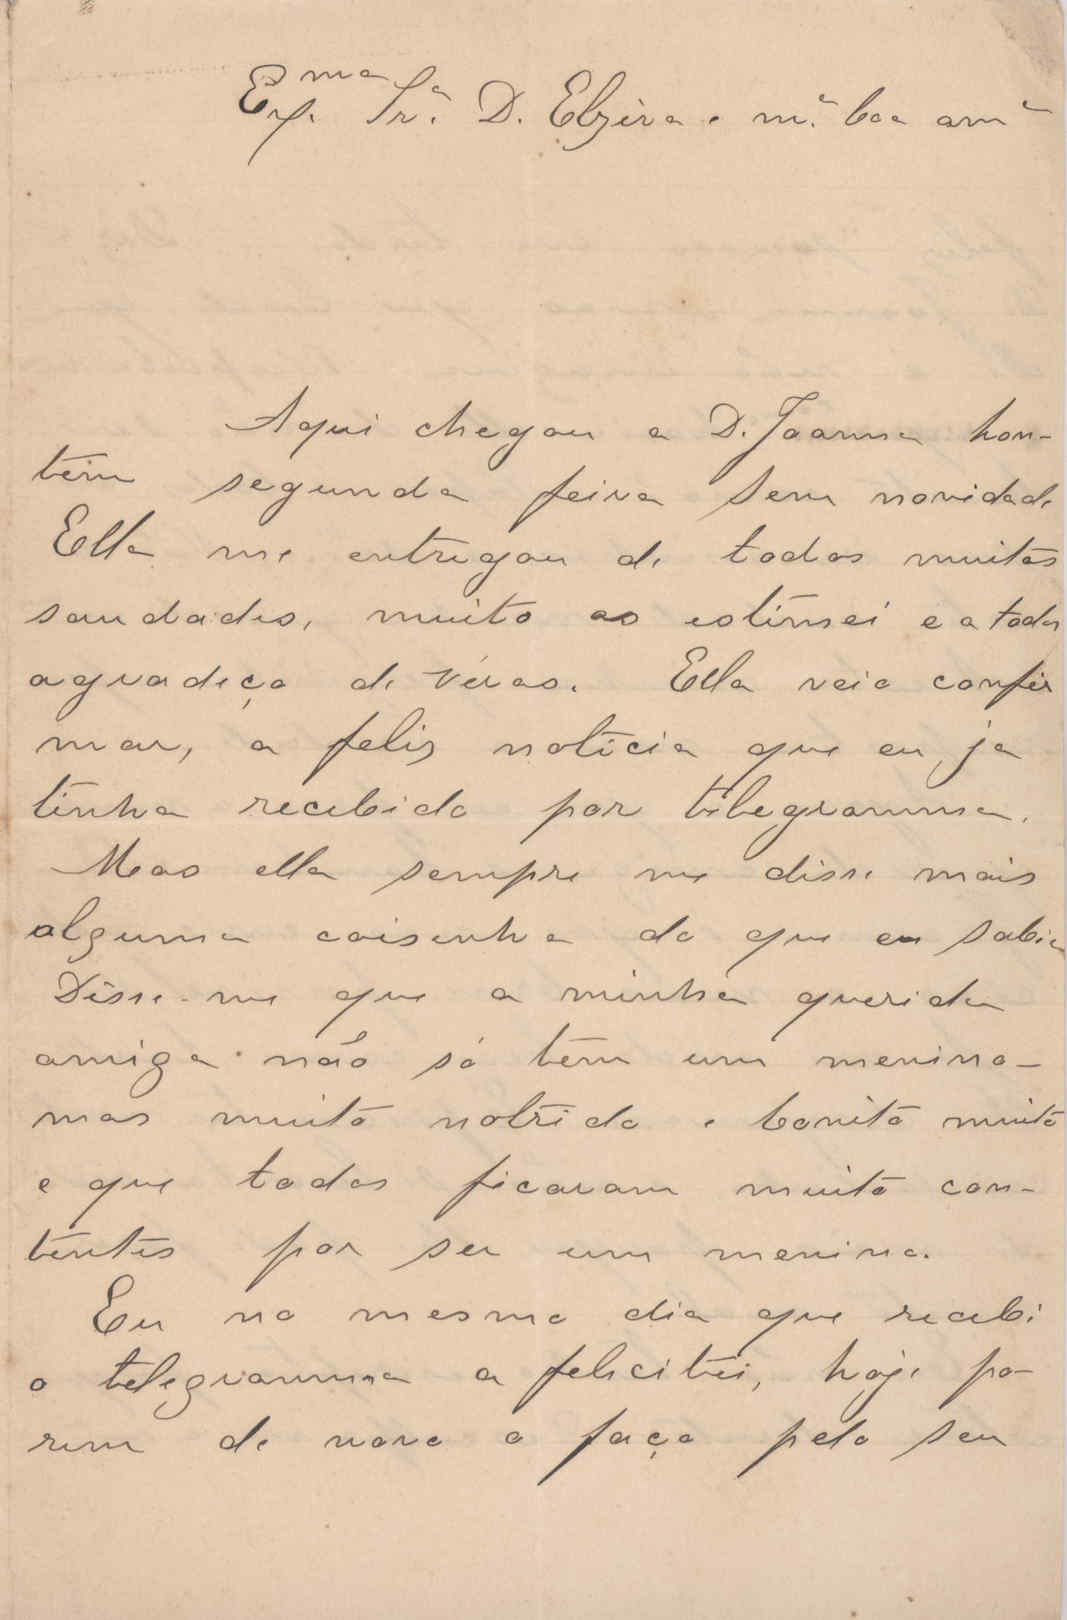 Ex.ma Sr.ª D. Elzira e m.ª boa amª
Aqui chegou a D. Joanna hon-
tem segunda feira sem novidade
Ella me entregou de todos muitas
saudades, muito as estimei e a todos
agradeço de véras. Ella veio confir
mar, a feliz noticia que eu ja
tinha recebido por telegramma.
Mas ella sempre me disse mais
alguma coisinha do que eu sabia
Disse-me que a minha querida
amiga não só tem um menino-
mas muito notrido e bonito muito
e que todos ficaram muito con-
tentes por ser um menino.
Eu no mesmo dia que recebi
o telegramma a felicitei, hoje po-
rem de novo o faço pelo seu